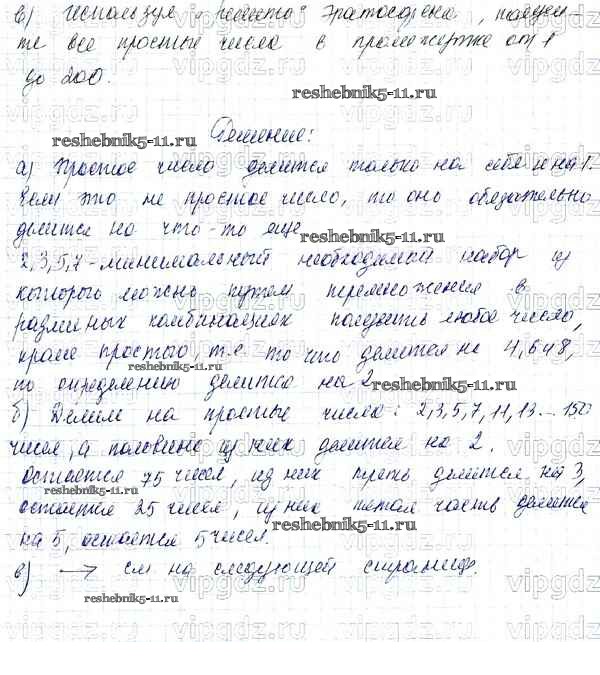 в) Используя „решето" Эратосфена, получи
те все простые числа в промежутке от 1
до 200.
reshebnik5-11.ru
Решение:
reshebnik5-11.ru
а) Простое число делится только на себя и на 1.
если это не простое число, то оно обязательно
делится на что-то еще.
reshebnik5-11.ru
2,3,5,7 - минимальный необходимый набор из
которого можно путем перемножения в
различных комбинациях получить любое число,
кроме простого, т.к. то что делится на 4,6 и 8,
reshebnik5-11.ru
по определению делится на 2
reshebnik5-11.ru
б) Делим на простые числа: 2,3,5,7,11,13...150
чисел, а половина из них делится на 2.
Остается 75 чисел, из них треть делится на 3,
reshebnik5-11.ru
остается 25 чисел, из них пятая часть делится
на 5, остается 5 чисел.
reshebnik5-11.ru
в) → см на следующей странице.
reshebnik5-11.ru
vipgdz.ru